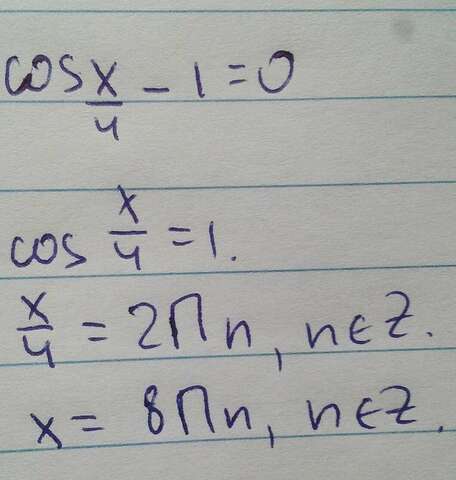 cos x/4 − 1 = 0
cos x/4 = 1.
x/4 = 2Πn, n∈Z.
x = 8Πn, n∈Z.